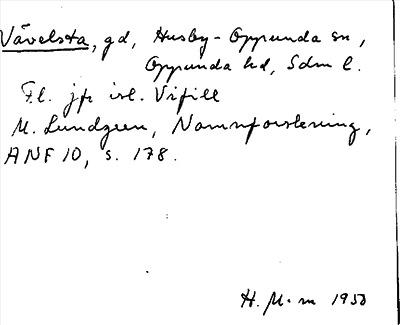 Vävelsta, gd, Husby-Oppunda sn,
Oppunda hd, Sdm l.
Fl. jfr isl. Vifill
M. Lundgren, Namnforskning,
ANF 10, s. 178.
H. M-m 1950